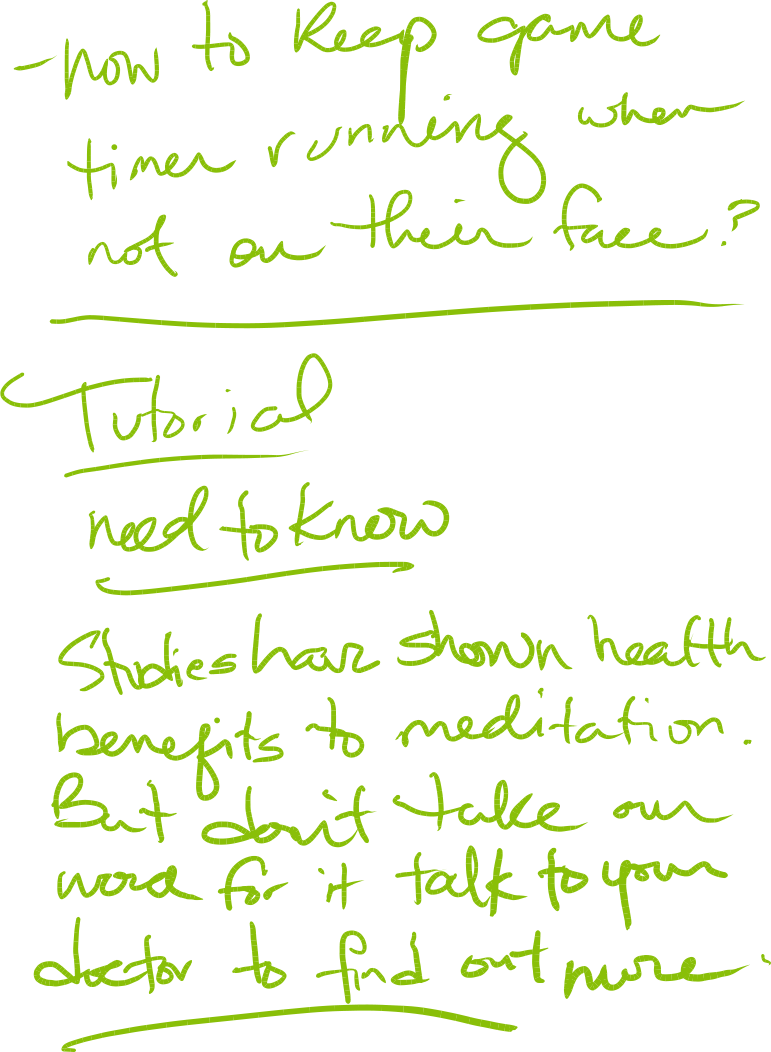 - how to keep game
timer running when
not on their face?
Tutorial
need to know
Studies have shown health
benefits to meditation.
But don't take our
word for it talk to your
doctor to find out more.